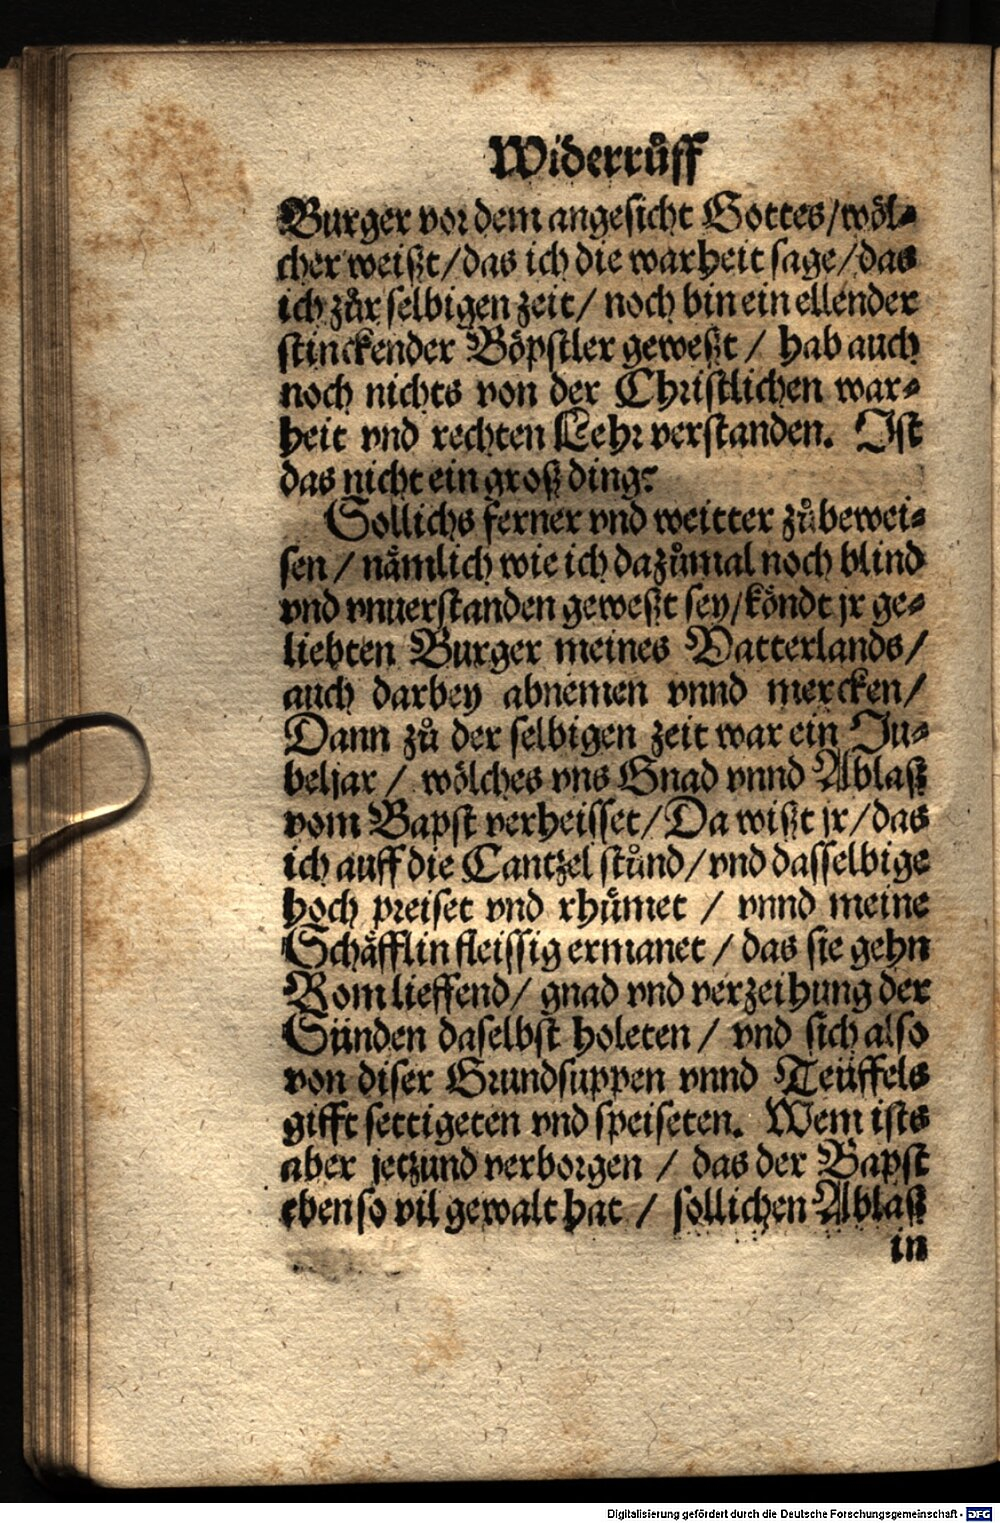 Widerrůff
Burger vor dem angesicht Gottes/wöl⸗
cher weißt/das ich die warheit sage/das
ich zůr selbigen zeit/ noch bin ein ellender
stinckender Böpstler geweßt / hab auch
noch nichts von der Christlichen war⸗
heit vnd rechten Lehr verstanden. Ist
das nicht ein groß ding?
Sollichs ferner vnd weitter zůbewei⸗
sen / nämlich wie ich dazůmal noch blind
vnd vnuerstanden geweßt sey/köndt jr ge⸗
liebten Burger meines Vatterlands/
auch darbey abnemen vnnd mercken/
Dann zů der selbigen zeit war ein Ju⸗
beljar / wölches vns Gnad vnnd Ablaß
vom Bapst verheisset/Da wißt jr/das
ich auff die Cantzel stůnd/vnd dasselbige
hoch preiset vnd rhůmet / vnnd meine
Schäfflin fleissig ermanet / das sie gehn
Rom lieffend/ gnad vnd verzeihung der
Sünden daselbst holeten / vnd sich also
von diser Grundsuppen vnnd Teüffels
gifft settigeten vnd speiseten. Wem ists
aber jetzund verborgen / das der Bapst
eben so vil gewalt hat / sollichen Ablaß
in
Digitalisierung gefördert durch die Deutsche Forschungsgemeinschaft - DFG